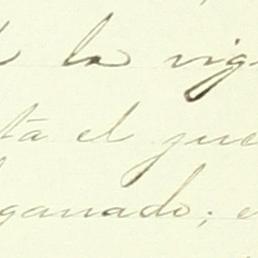 la vig
ta el jue
ganado; e